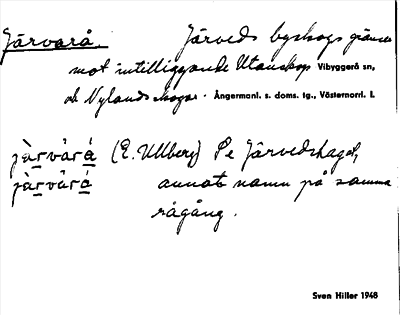 Järvarå. Järveds byskogs gränser
mot intilliggande Utanskog Vibyggerå sn,
och Nylands skogar. Ångermanl. s. doms. tg., Västernorrl. l.
jà̱rvårá̱ (E. Ullberg) Se Järvedshaget,
jà̱rvårá̱ annat namn på samma
rågång.
Sven Hiller 1948